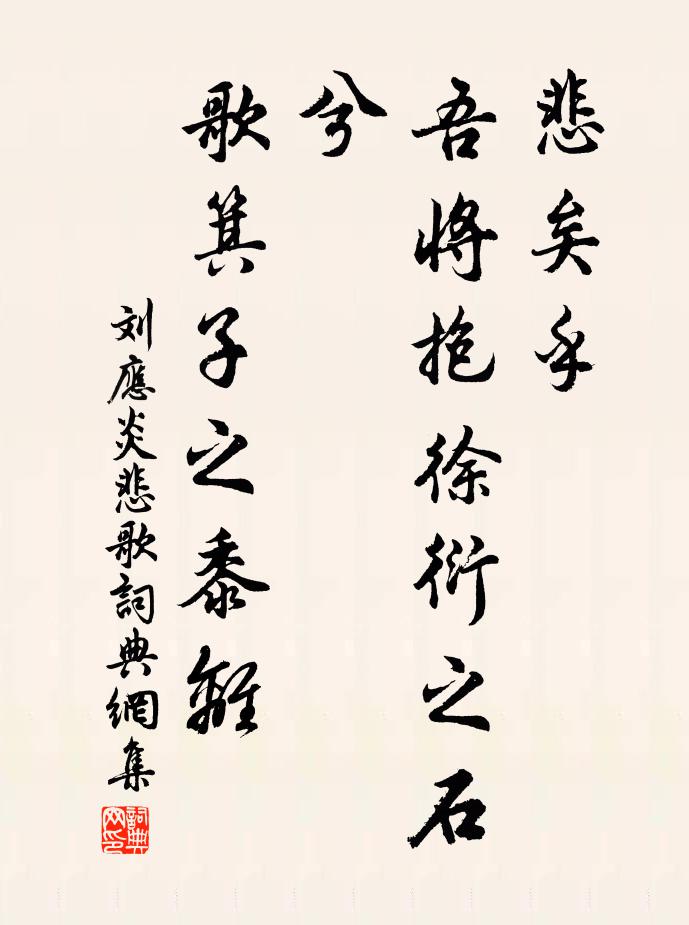 悲矣乎
吾將抱徐衍之石
兮
歌箕子之黍離
刘應炎悲歌詞典網集
詞典网印